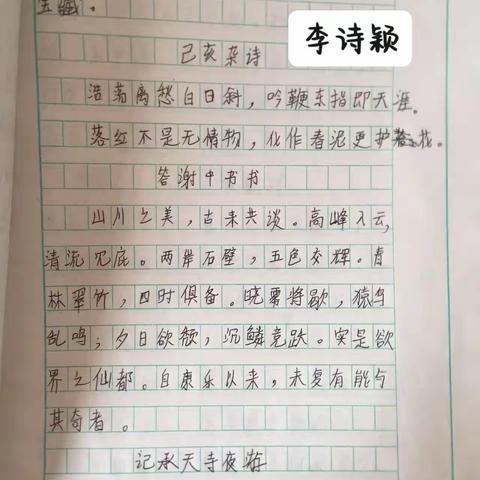 李诗颖
己亥杂诗
浩荡离愁白日斜，吟鞭东指即天涯。
落红不是无情物，化作春泥更护花。
答谢中书书
山川之美，古来共谈。高峰入云，
清流见底。两岸石壁，五色交辉。青
林翠竹，四时俱备。晓雾将歇，猿鸟
乱鸣；夕日欲颓，沉鳞竞跃。实是欲
界之仙都。自康乐以来，未复有能与
其奇者。
记承天寺夜游